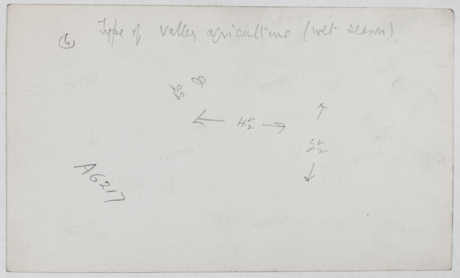 (6) Type of valley agriculture (wet season).
← 4½ →
↑
2½
↓
A6217